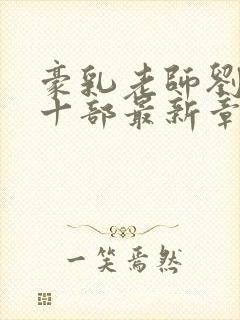 豪乳老師劉
十部最新章
一笑焉然